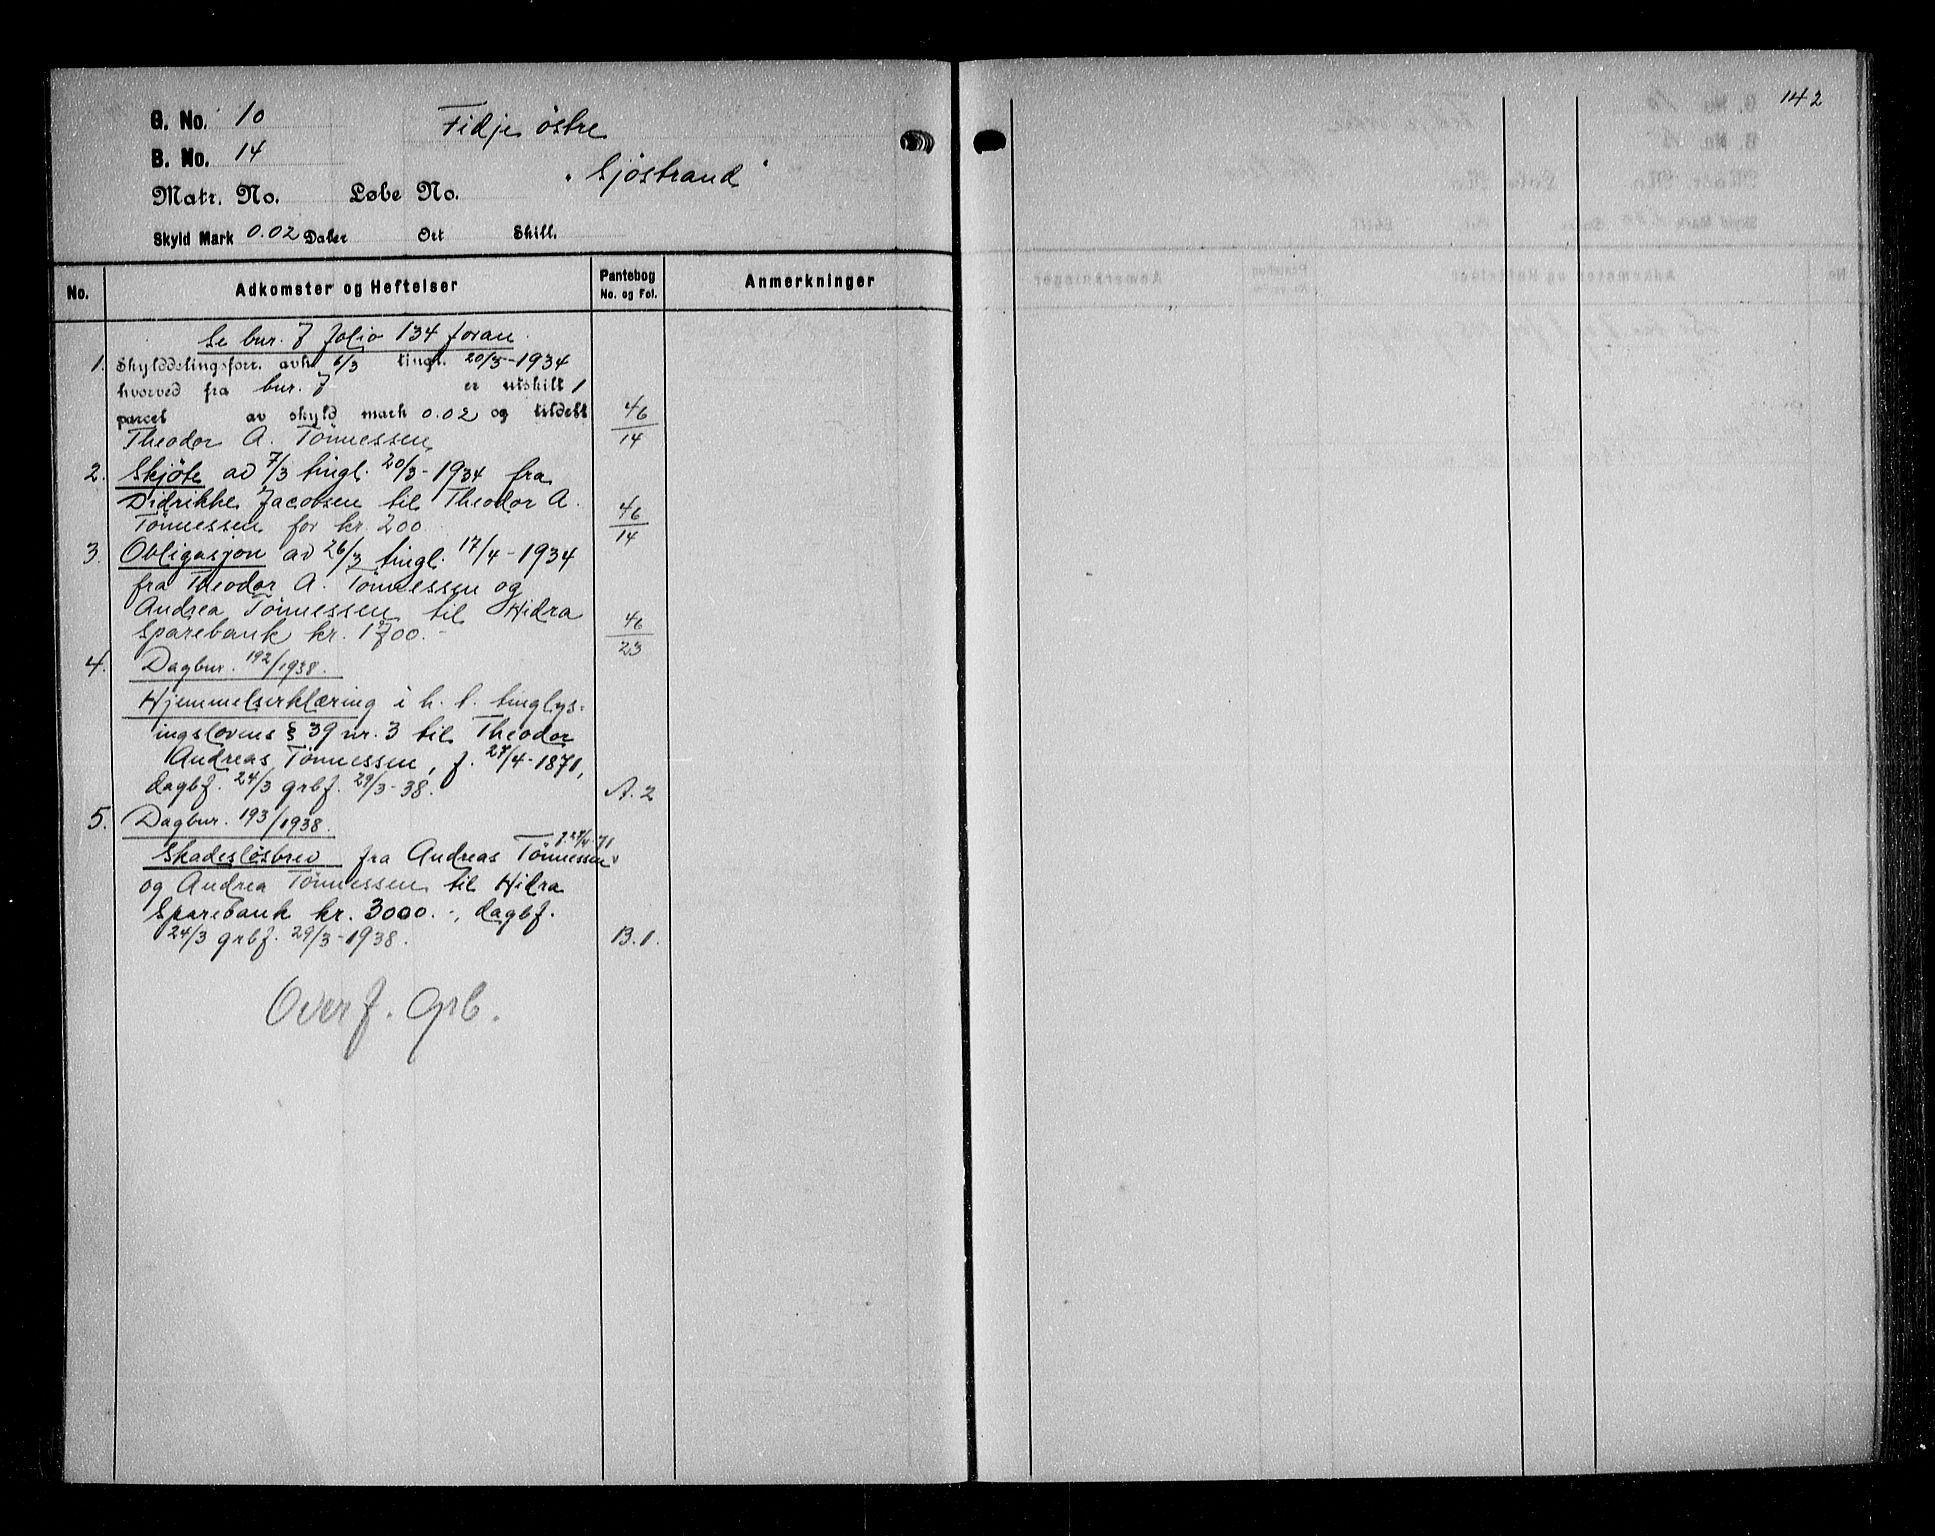 G. No. 10
B. No. 14
Matr. No. Løbe No.
Skyld Mark 0.02 Daler Ort Skill.
Fidje östre
"Sjöstrand"
No. Adkomster og Heftelser Pantebog No. og Fol. Anmerkninger
Se bnr. 7 folio 134 foran.
1. Skylddelingsforr. avh. 6/3 tingl. 20/3-1934
hvorved fra bnr. 7 er utskilt 1
parcel av skyld mark 0.02 og tildelt 46/14
Theodor A. Tönnessen
2. Skjöte av 7/3 tingl. 20/3-1934 fra
Didrikke Jacobsen til Theodor A.
Tönnessen for kr. 200 46/14
3. Obligasjon av 26/3 tingl. 17/4-1934
fra Theodor A. Tönnessen og
Andrea Tönnessen til Hidra
Sparebank kr. 1700.- 46/23
4. Dagbnr. 192/1938.
Hjemmelserklæring i h. t. tinglys-
ingslovens § 39 nr. 3 til Theodor
Andreas Tönnessen, f. 27/4-1871,
dagbf. 24/3 grbf. 29/3-38. A. 2
5. Dagbnr. 193/1938.
f. 27/4-71
Skadeslösbrev fra Andreas Tönnessen
og Andrea Tönnessen til Hidra
Sparebank kr. 3000.-, dagbf.
24/3 grbf. 29/3-1938. B. 1.
Overf. grb.
142